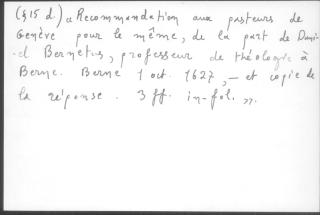 (§15 d.) « Recommandation aux pasteurs de
Genève pour le même, de la part de Dani-
el Bernetus, professeur de théologie à
Berne. Berne 1 oct. 1627, — et copie de
la réponse. 3 ff. in-fol. ».